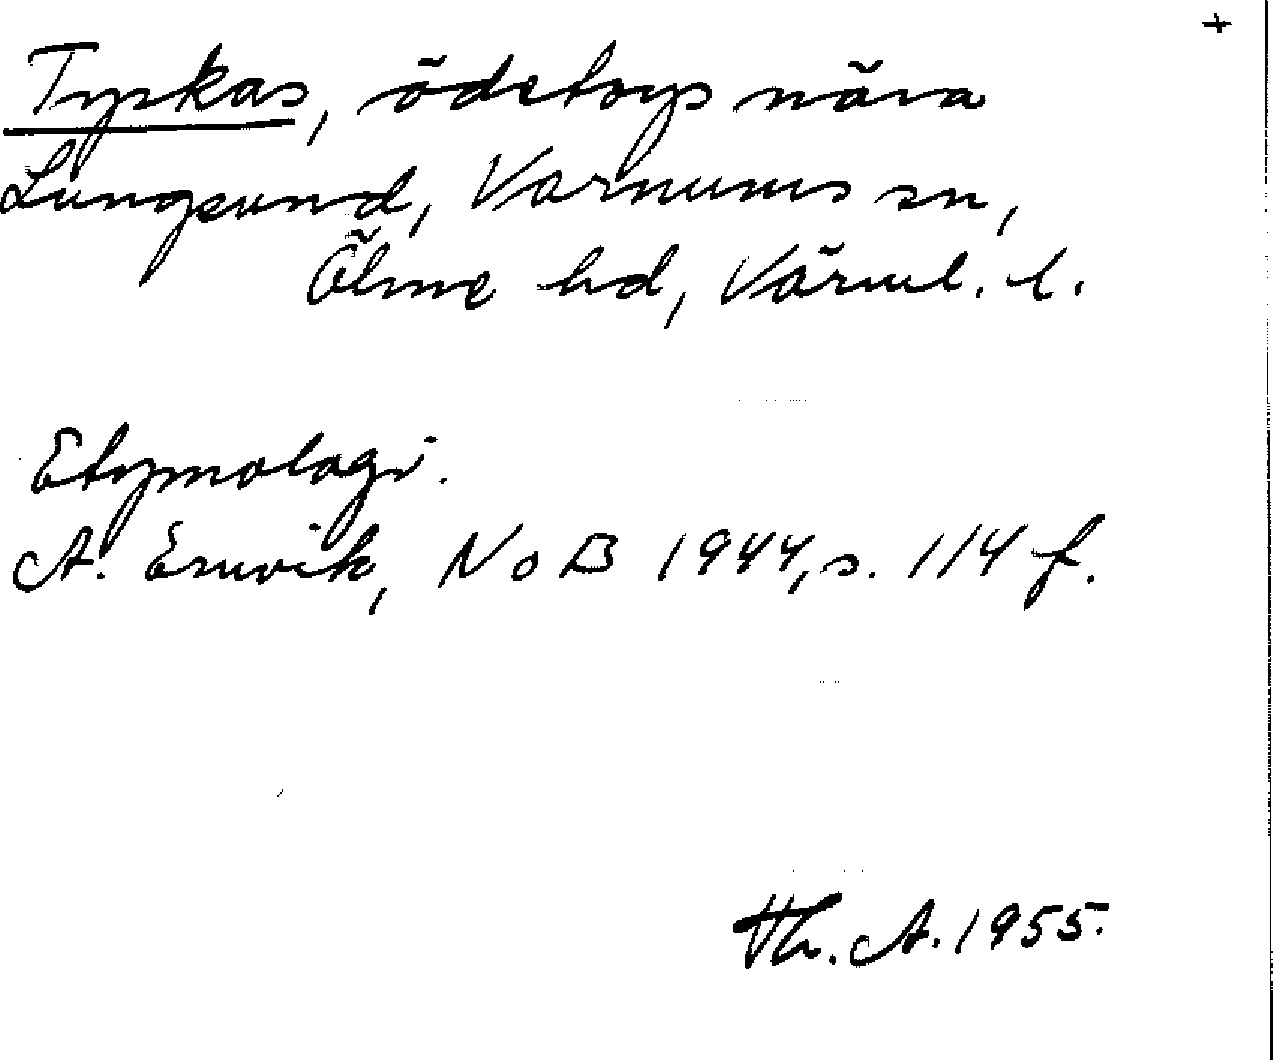 +
Tyskas, ödetorp nära
Lungsund, Varnums sn,
Ölme hd, Värml. l.
Etymologi.
A. Ernvik, NoB 1944, s. 114 f.
Th. A. 1955.